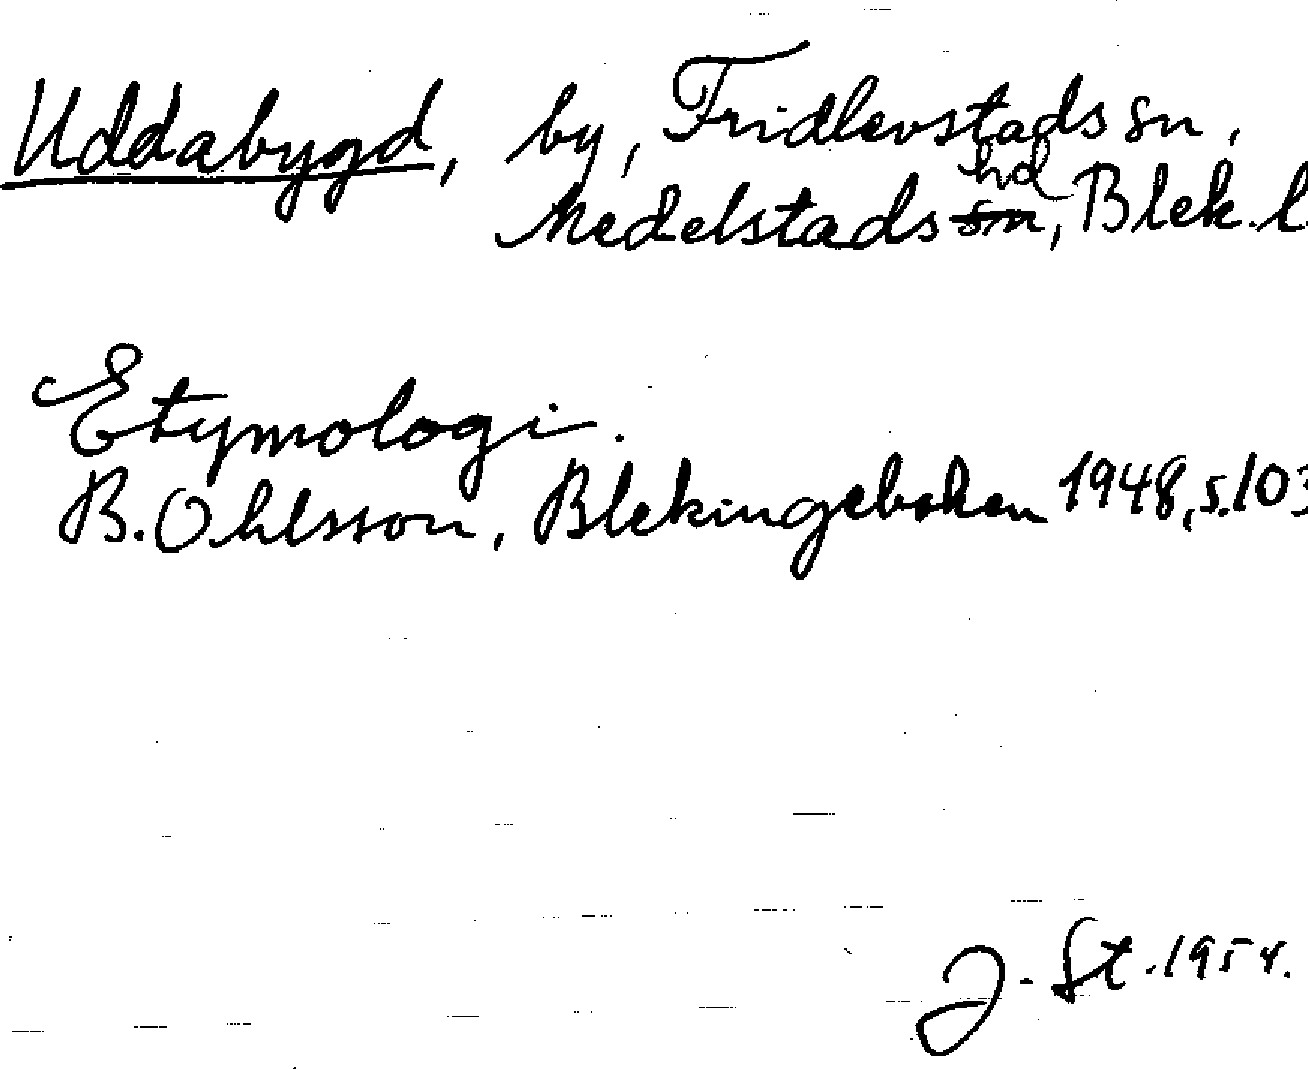 Uddabygd, by, Fridlevstads sn,
Medelstads hd, Blek. l.
Etymologi.
B. Ohlsson, Blekingeboken 1948, s. 103
J. St. 1954.